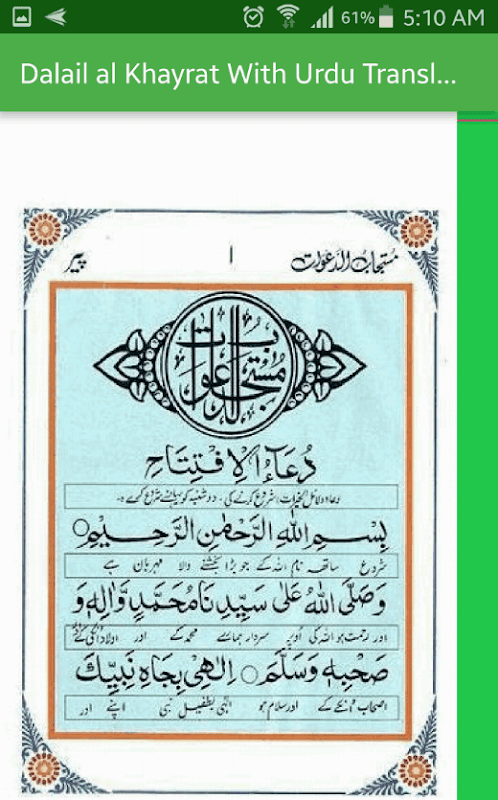 61% 5:10 AM
Dalail al Khayrat With Urdu Transl...
مستجاب الدعوات ١ پیر
مستجاب الدعوات
دُعَاءُ الْاِفْتِتَاحِ
بِسْمِ اللهِ الرَّحْمٰنِ الرَّحِيْمِ ○
شروع ساتھ نام اللہ کے جو بڑا بخشنے والا مہربان ہے
وَصَلَّى اللهُ عَلٰى سَيِّدِنَا مُحَمَّدٍ وَّاٰلِهٖ وَ
اور رحمت ہو اللہ کی اوپر سردار ہمارے محمد کے اور اولاد انکی کے
صَحْبِهٖ وَسَلَّمَ ○ اِلٰهِىْ بِجَاهِ نَبِيِّكَ
اصحاب انکے کے اور سلام ہو الٰہی بطفیل نبی اپنے اور